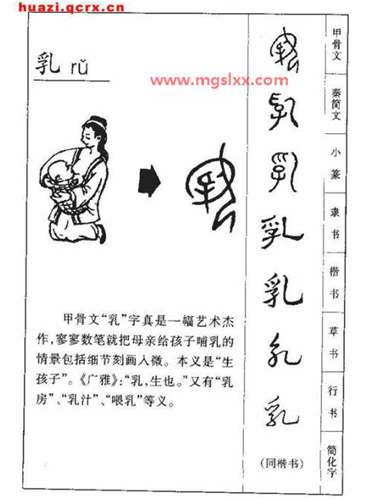 huazi.qcrx.cn
乳 rǔ
www.mgslxx.com
甲骨文“乳”字真是一幅艺术杰
作，寥寥数笔就把母亲给孩子哺乳的
情景包括细节刻画入微。本义是“生
孩子”。《广雅》：“乳，生也。”又有“乳
房”、“乳汁”、“喂乳”等义。
乳
乳
乳
乳
乳
乳
乳
（同楷书）
甲骨文
秦简文
小篆
隶书
楷书
草书
行书
简化字